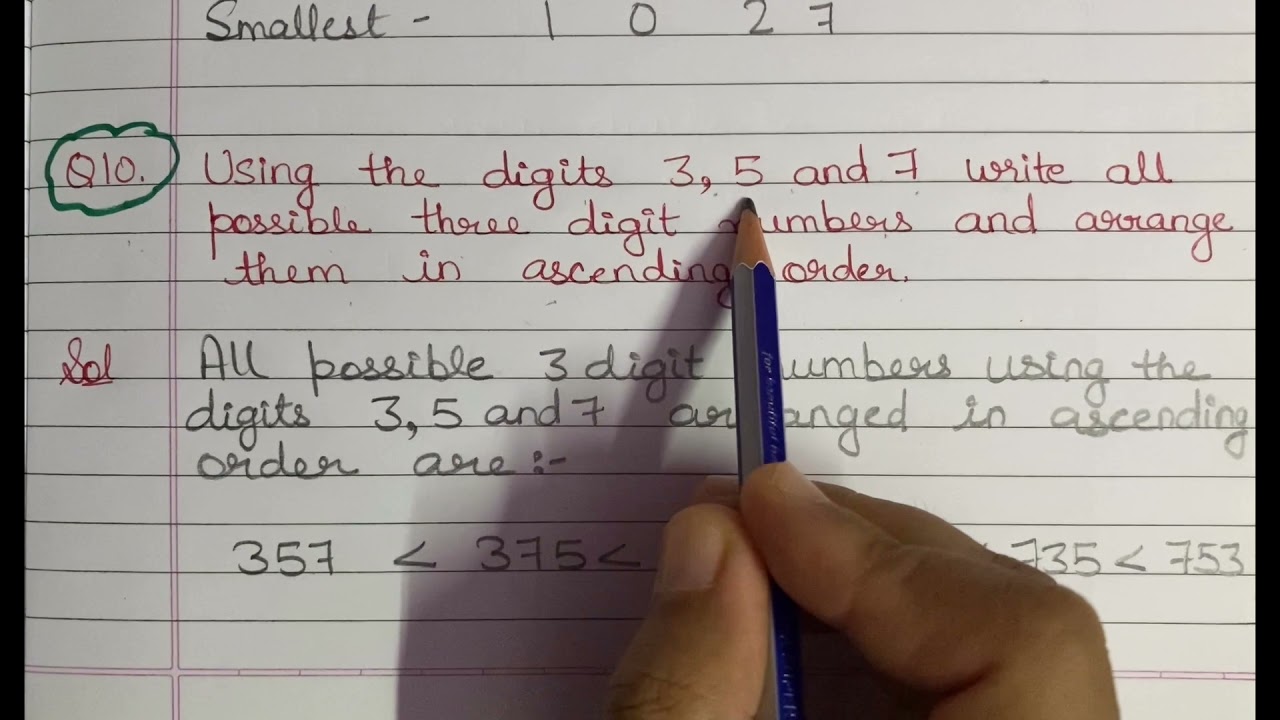 Smallest - 1 0 2 7
Q10. Using the digits 3, 5 and 7 write all
possible three digit numbers and arrange
them in ascending order.
Sol All possible 3 digit numbers using the
digits 3, 5 and 7 arranged in ascending
order are :-
357 < 375 < < 735 < 753